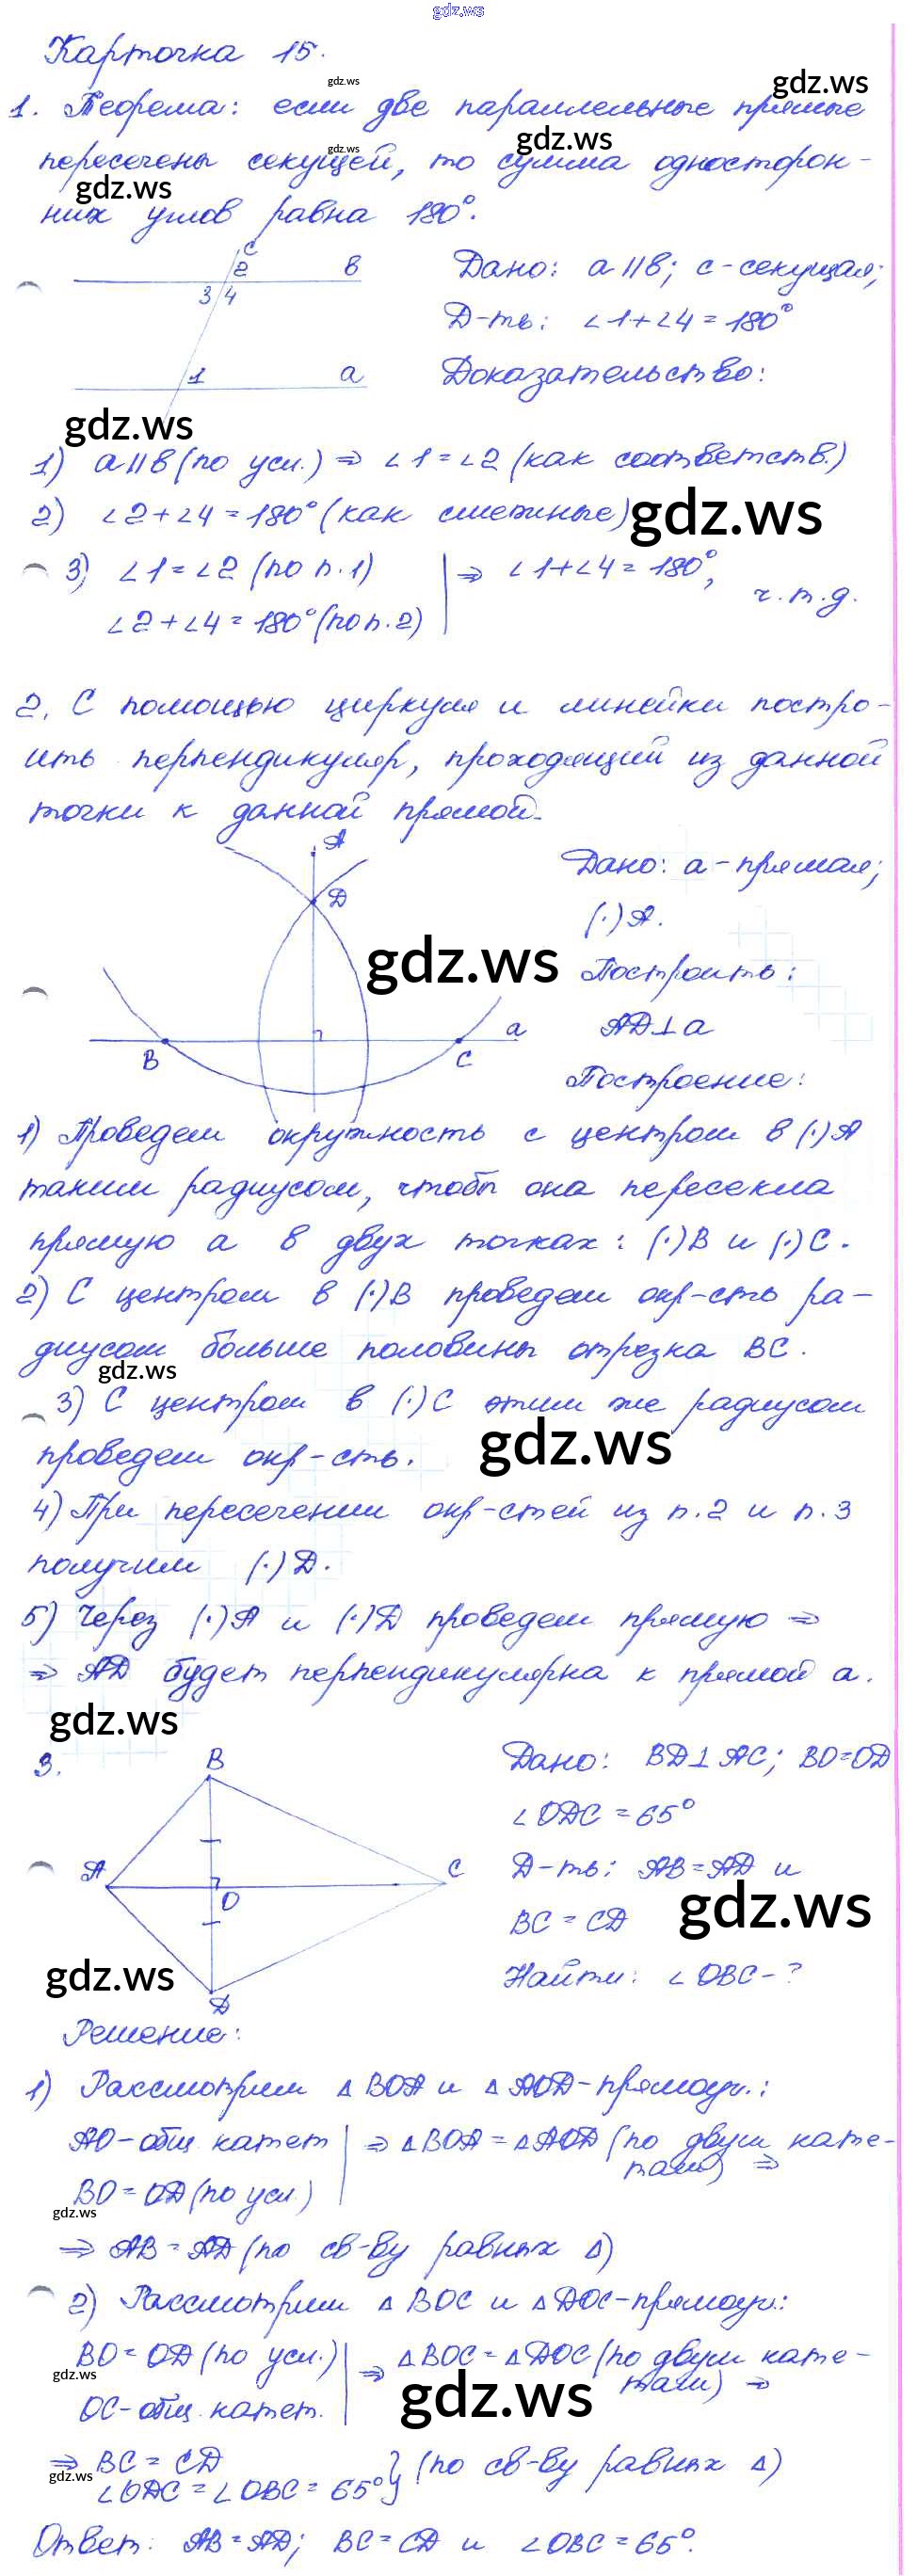 gdz.ws
Карточка 15.
gdz.ws
gdz.ws
1. Теорема: если две параллельные прямые
gdz.ws
gdz.ws
пересечены секущей, то сумма односторон-
gdz.ws
них углов равна 180°.
c
2 b
3 4
1 a
Дано: a||b; c-секущая;
Д-ть: ∠1+∠4=180°
Доказательство:
gdz.ws
1) a||b (по усл.) ⇒ ∠1=∠2 (как соответств.)
2) ∠2+∠4=180° (как смежные)
gdz.ws
3) ∠1=∠2 (по п.1) ⇒ ∠1+∠4=180°,
ч.т.д.
∠2+∠4=180° (по п.2)
2. С помощью циркуля и линейки постро-
ить перпендикуляр, проходящий из данной
точки к данной прямой.
A
D
a
B C
Дано: a-прямая;
(·)A.
gdz.ws
Построить:
AD⊥a
Построение:
1) Проведем окружность с центром в (·)A
таким радиусом, чтобы она пересекла
прямую a в двух точках: (·)B и (·)C.
2) С центром в (·)B проведем окр-сть ра-
диусом больше половины отрезка BC.
gdz.ws
3) С центром в (·)C этим же радиусом
проведем окр-сть.
gdz.ws
4) При пересечении окр-стей из п.2 и п.3
получим (·)D.
5) Через (·)A и (·)D проведем прямую ⇒
⇒ AD будет перпендикулярна к прямой a.
gdz.ws
3.
B
A C
O
D
Дано: BD⊥AC; BO=OD
∠ODC=65°
Д-ть: AB=AD и
BC=CD
gdz.ws
Найти: ∠OBC-?
gdz.ws
Решение:
1) Рассмотрим △BOA и △AOD-прямоуг.:
AO-общ. катет ⇒ △BOA=△AOD (по двум кате-
там) ⇒
BO=OD (по усл.)
gdz.ws
⇒ AB=AD (по св-ву равных △)
2) Рассмотрим △BOC и △DOC-прямоуг.:
BO=OD (по усл.) ⇒ △BOC=△DOC (по двум кате-
там) ⇒
gdz.ws
gdz.ws
OC-общ. катет.
⇒ BC=CD
∠ODC=∠OBC=65° } (по св-ву равных △)
gdz.ws
Ответ: AB=AD; BC=CD и ∠OBC=65°.